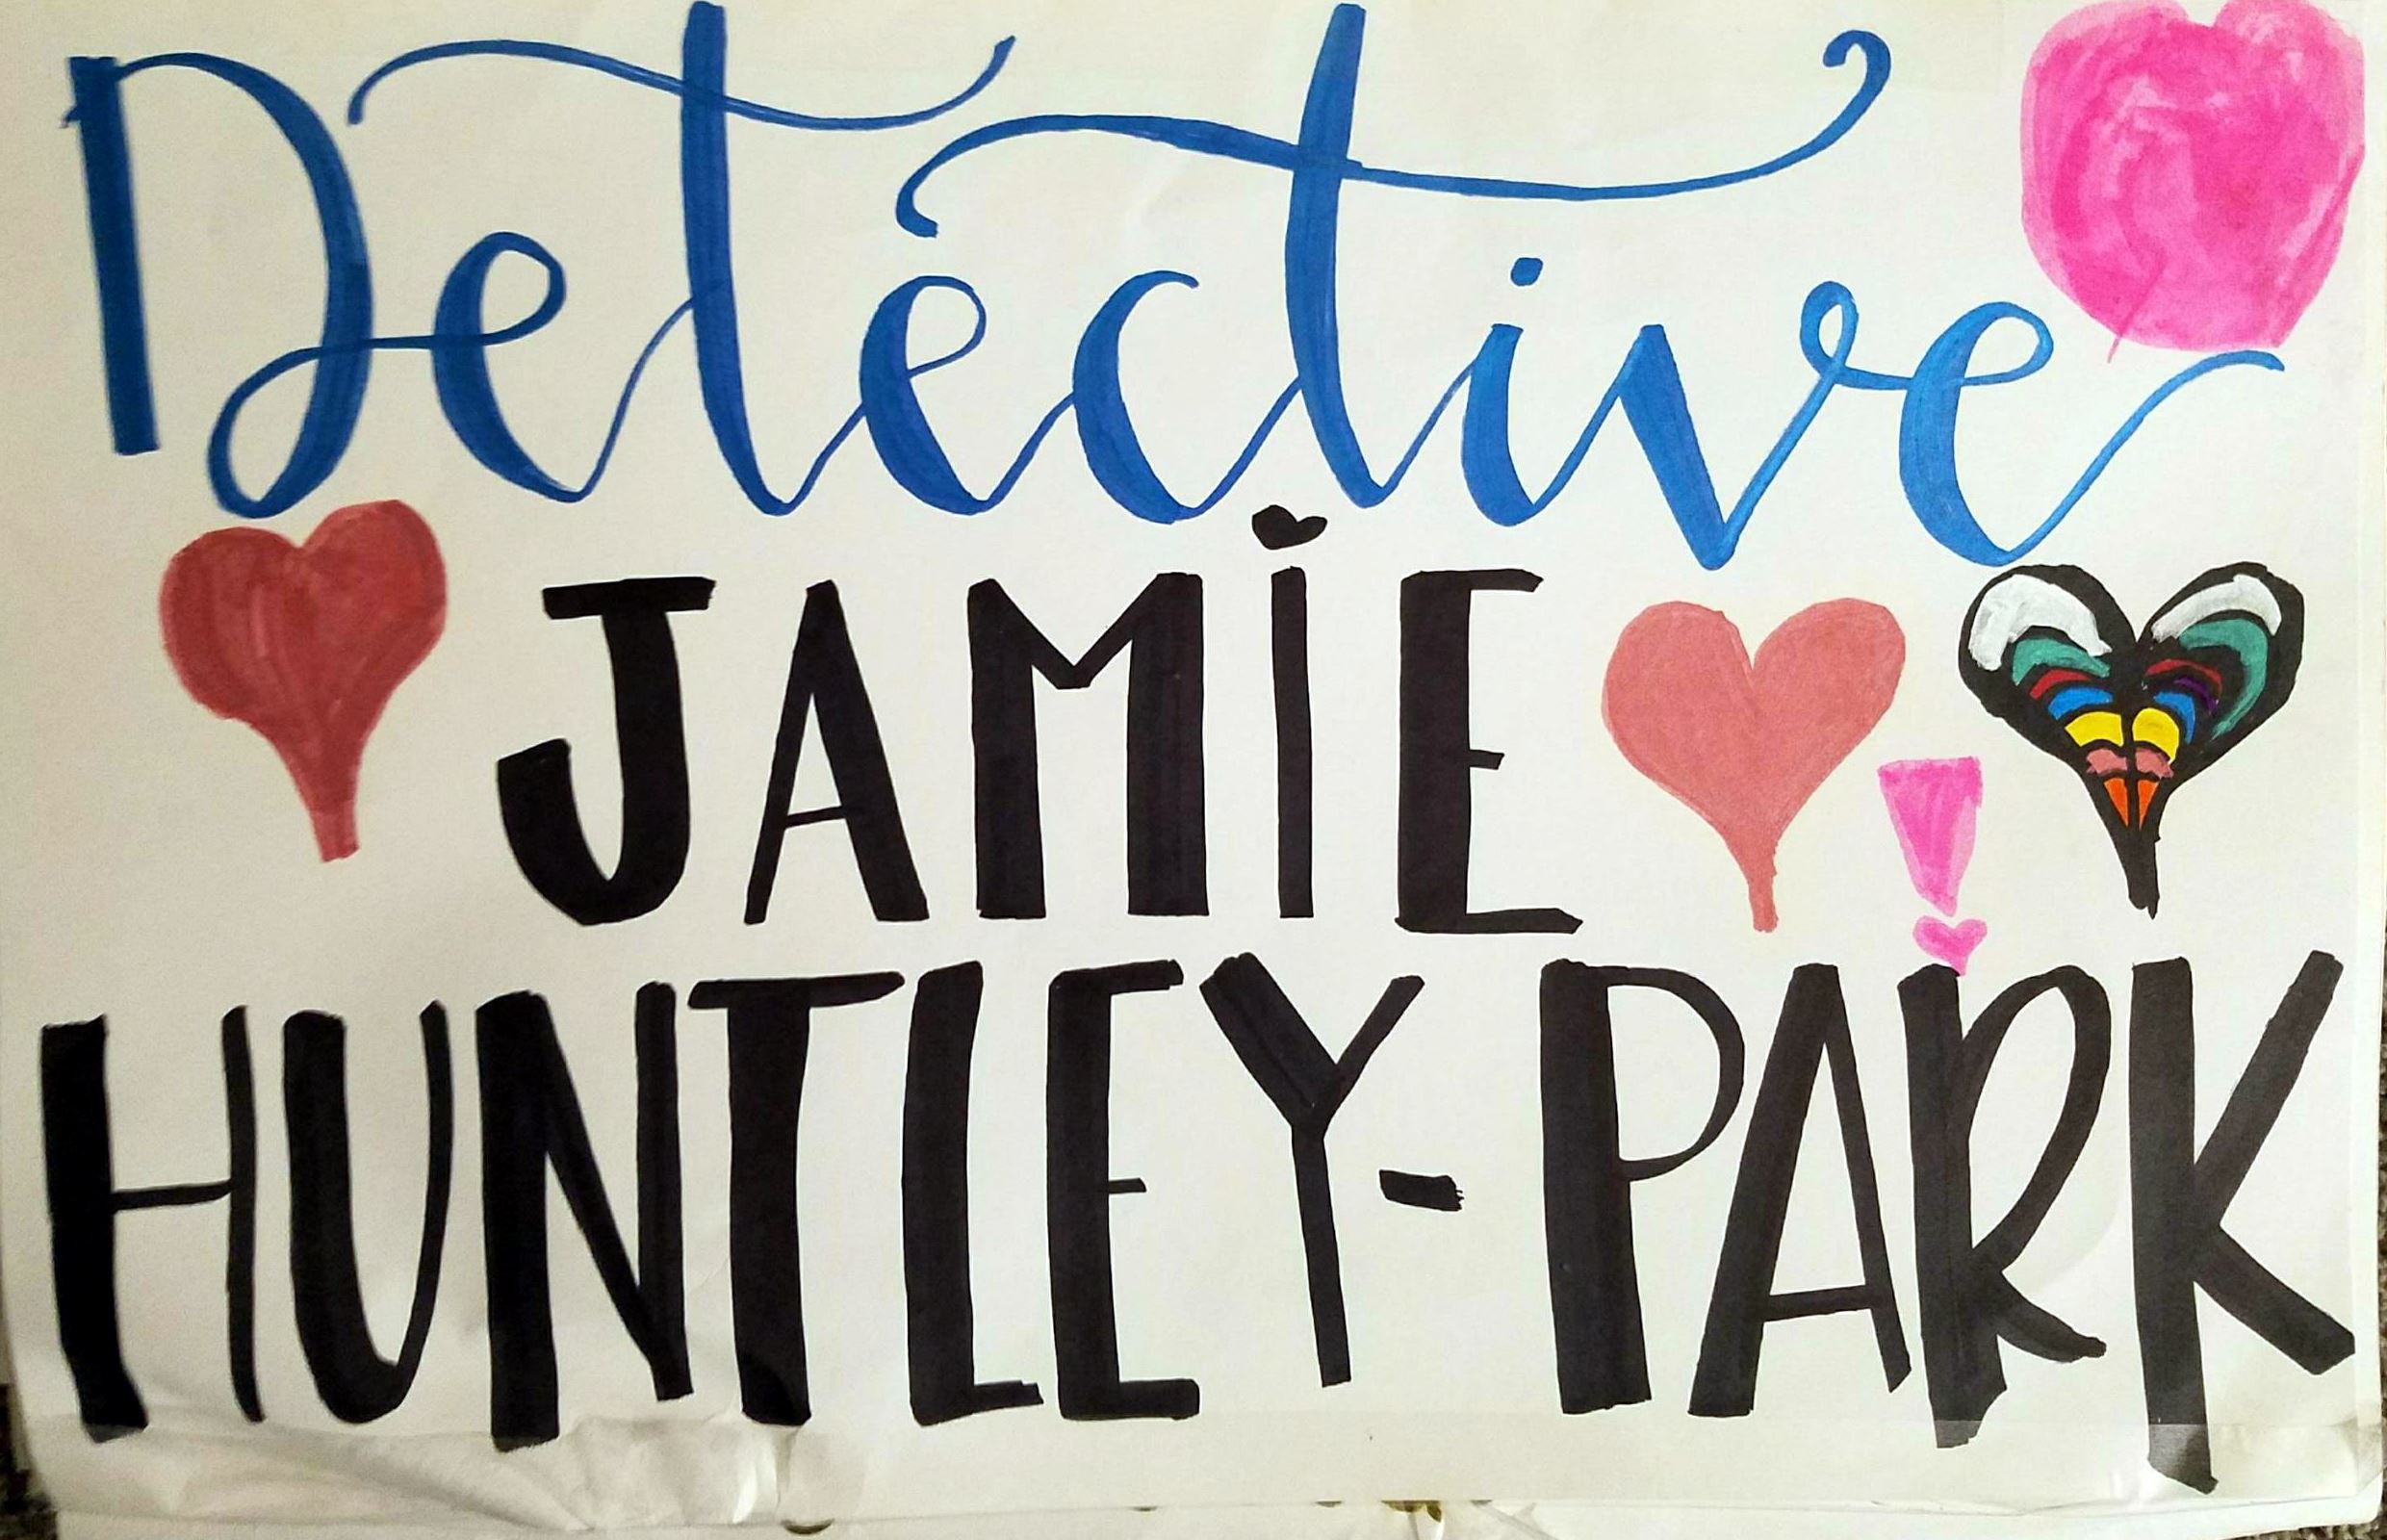 Detective
JAMiE
HUNTLEY-PARK